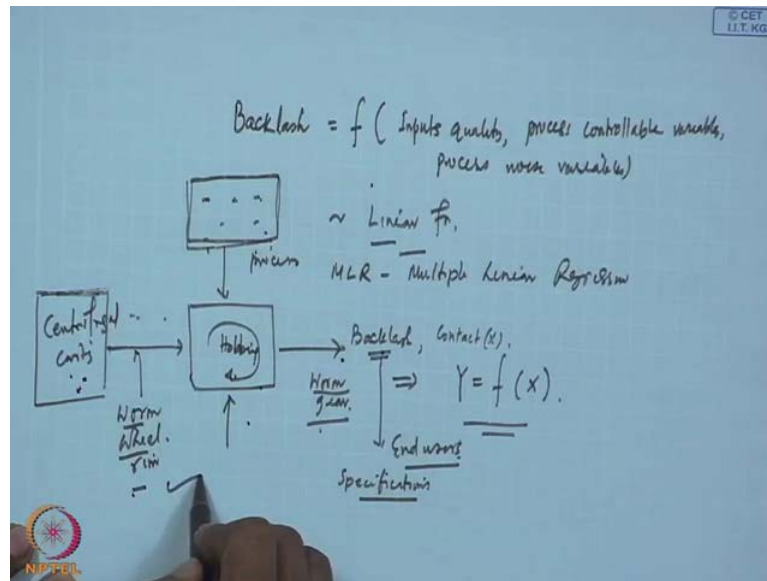 © CET
I.I.T. KG
Backlash = f ( Inputs quality, process controllable variable,
process noise variables)
~ Linear fn.
process
MLR - Multiple Linear Regression
Centrifugal
Hobbing
Backlash, Contact(x).
Worm
wheel.
rim
Worm
gear.
⇒ Y = f (x).
End users
Specifications
NPTEL